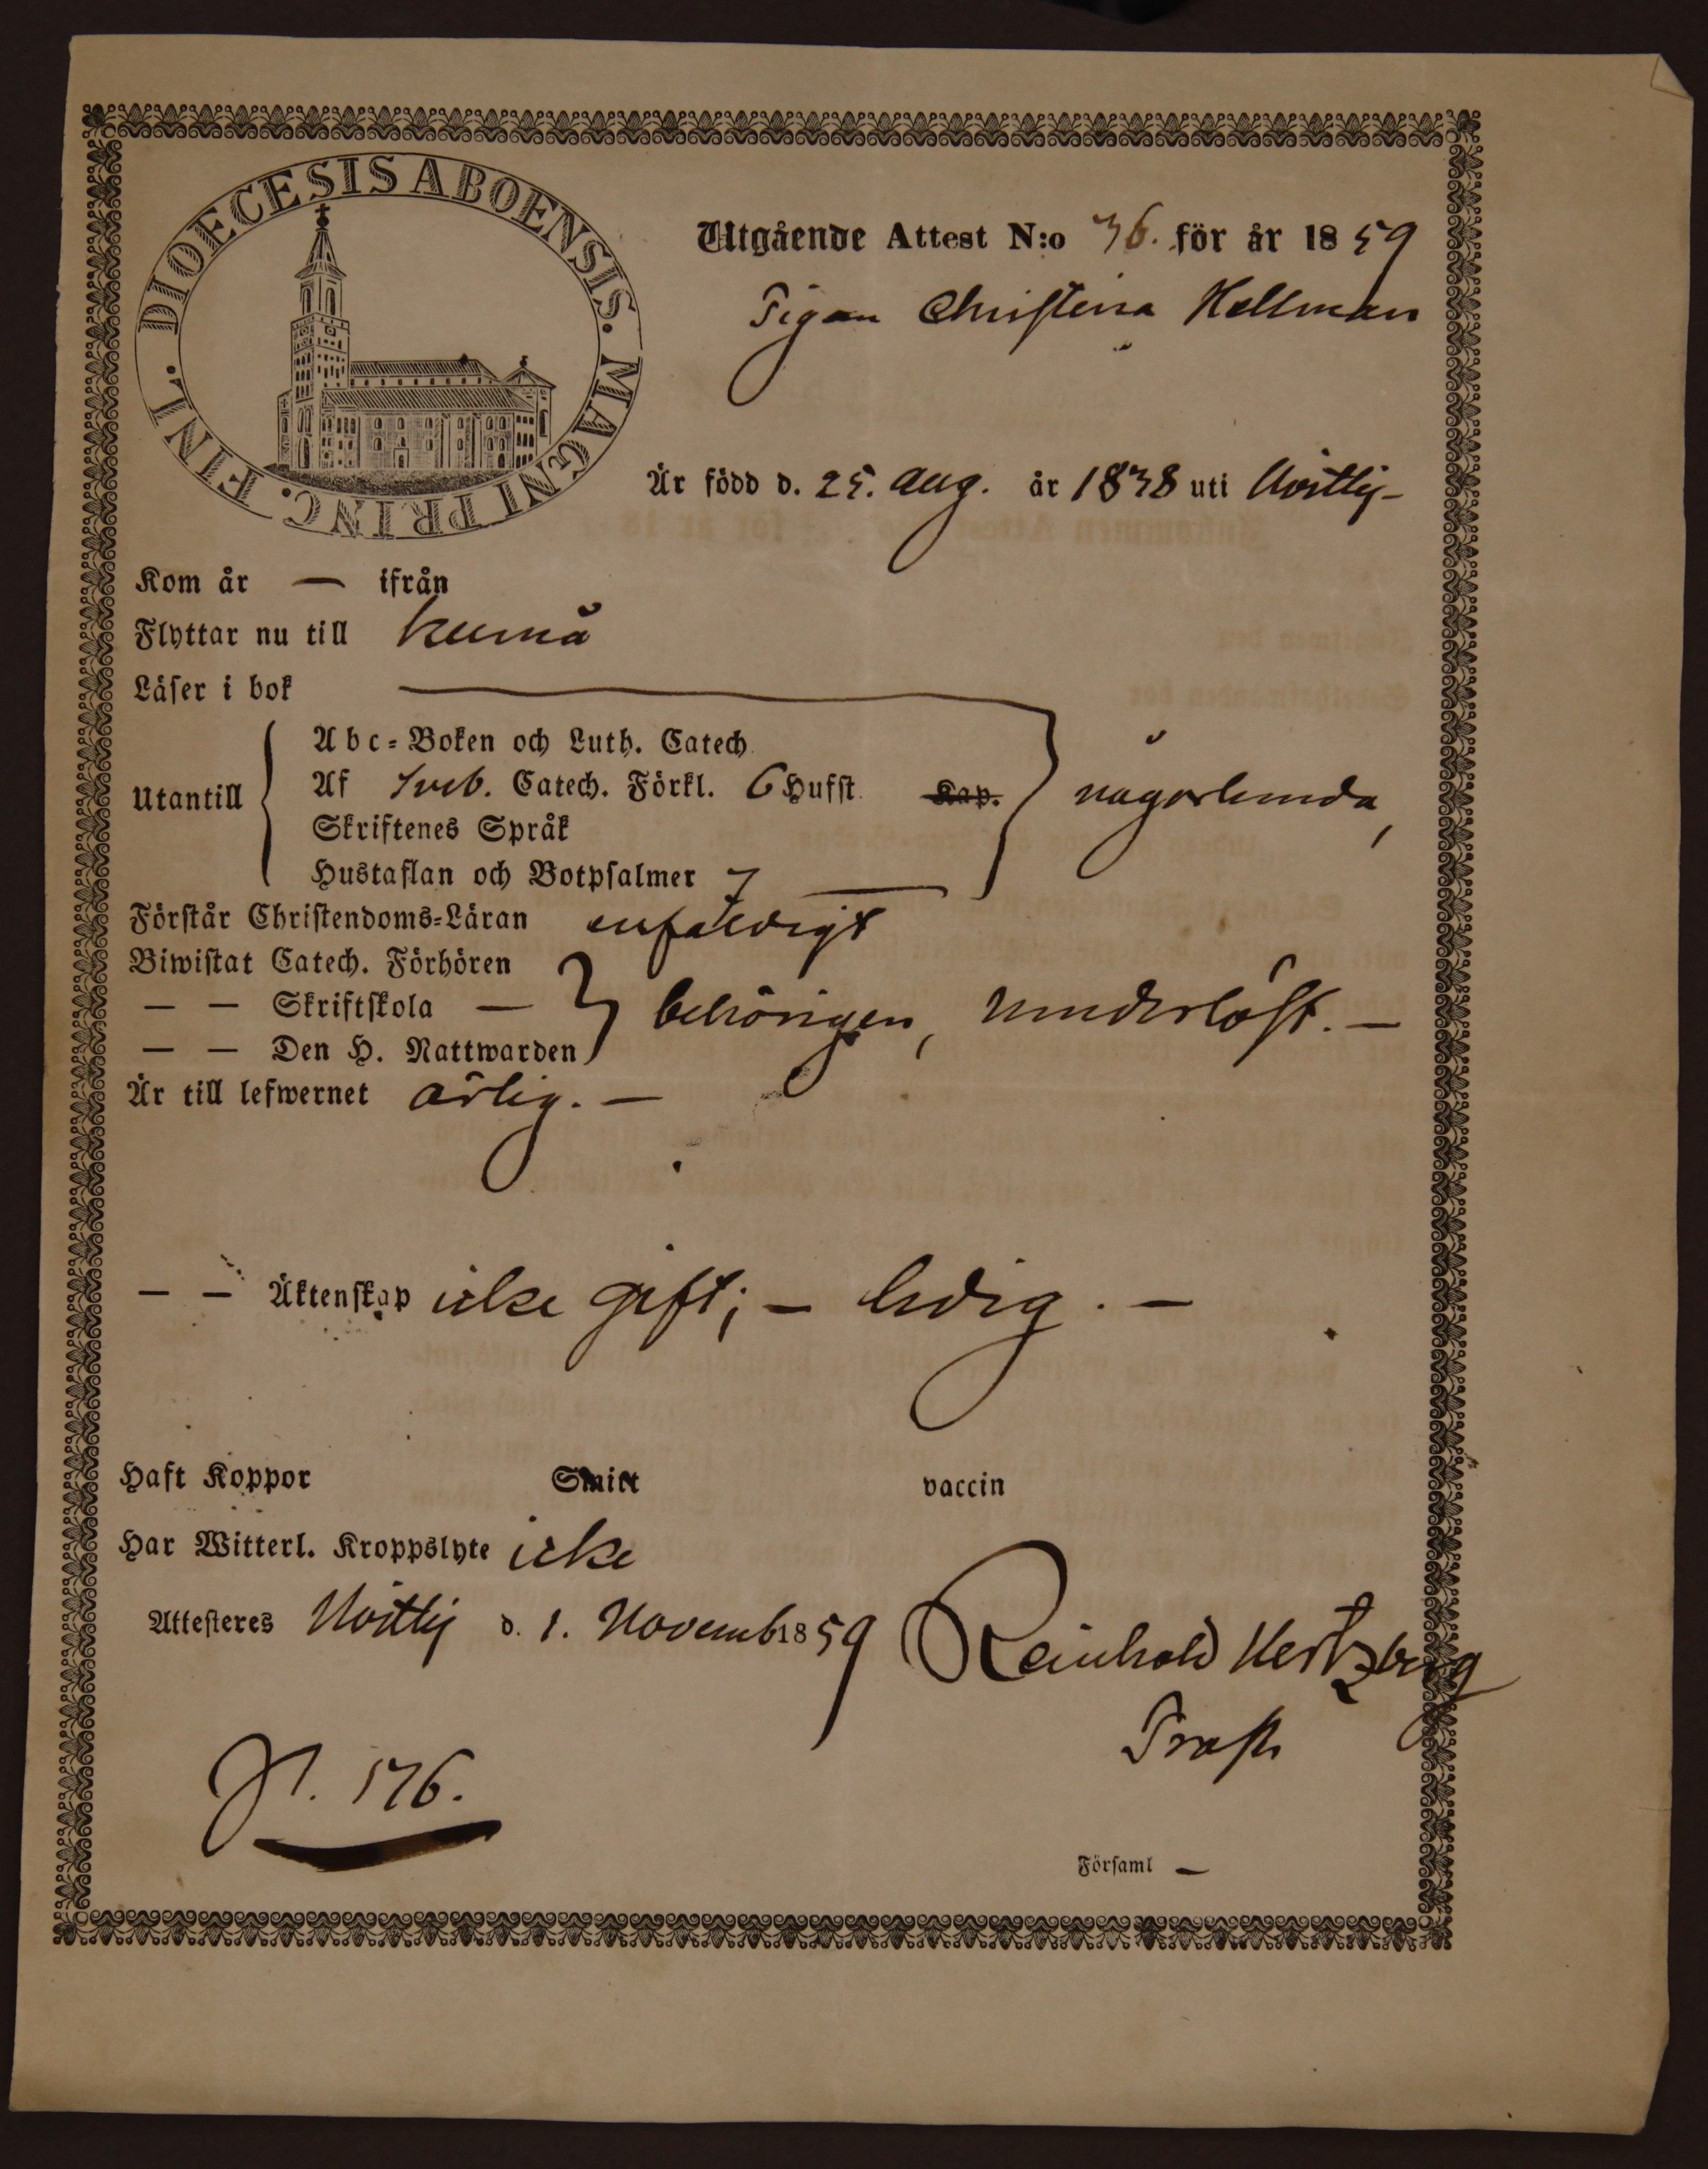 DIOECESIS ABOENSIS. MAGNI PRINC. FINL.
Utgående Attest N:o 36. för år 1859
Pigan Christina Hellman
Är född d. 25. Aug. år 1838 uti Hvittis
Kom år — ifrån
Flyttar nu till Kumå
Läser i bok
Utantill
Abc-Boken och Luth. Catech.
Af Sveb. Catech. Förkl. 6 Hufst. Kap.
någorlunda,
Skriftenes Språk
Hustaflan och Botpsalmer 7
Förstår Christendoms-Läran enfaldigt
Biwistat Catech. Förhören
— — Skriftskola — behörigen,
— — Den H. Nattwarden
Är till lefwernet ärlig. —
— — Äktenskap icke gift; — ledig. —
Haft Koppor Smitt vaccin
Har Witterl. Kroppslyte icke
Attesteres Hvittis d. 1. Novemb 1859 Reinhold Hertzberg
Prost
N. 176.
Församl —